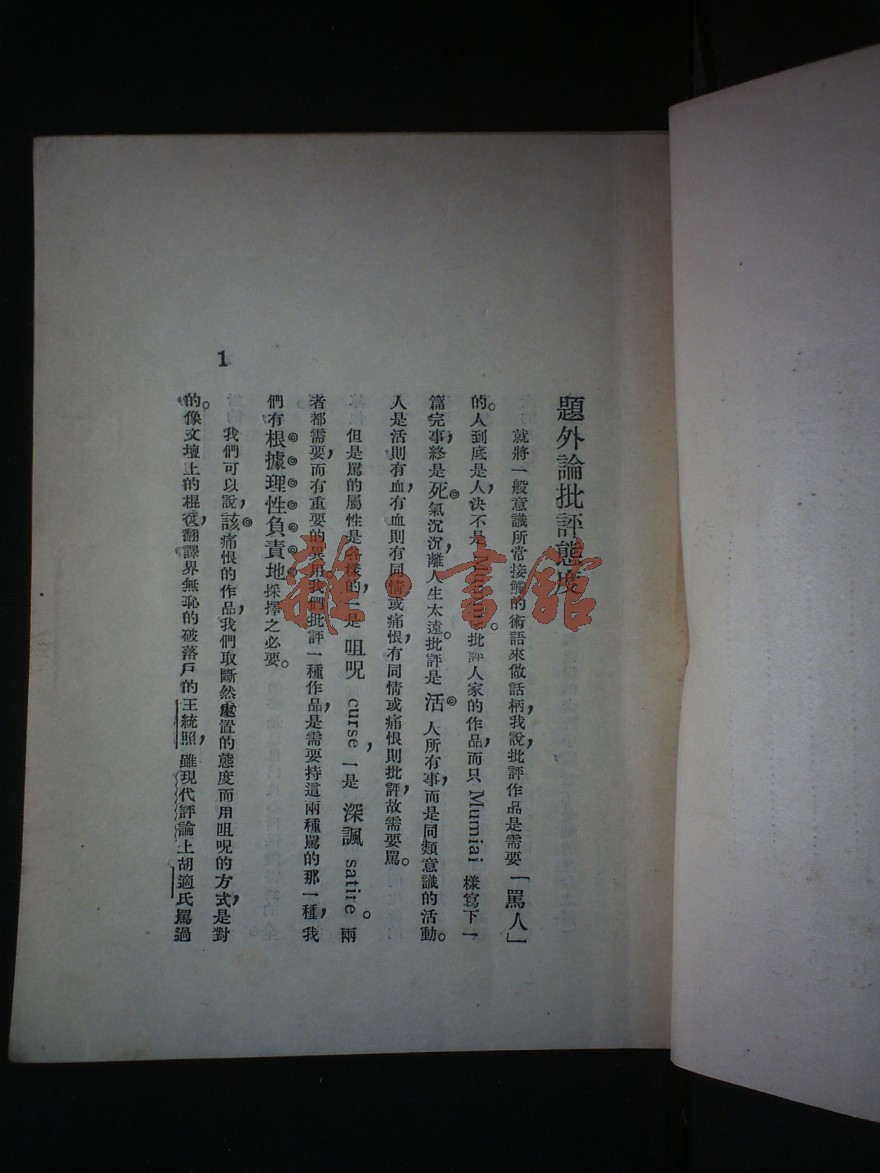 題外論批評態度
就將一般意識所常接觸的術語來做話柄，我說，批評作品是需要「罵人」
的。人到底是人，決不是 批評人家的作品，而只 Mumiai 樣寫下一
篇完事，終是死氣沉沉，離人生太遠。批評是 活 人所有事，而是同類意識的活動。
人是活則有血，有血則有同情或痛恨，有同情或痛恨則批評，故需要罵。
但是罵的屬性是各樣的，一是 咀呪 curse，一是 深諷 satire。兩
者都需要，而有重要的異用，我們批評一種作品，是需要持這兩種罵的那一種，我
們有根據理性負責地採擇之必要。
我們可以說，該痛恨的作品，我們取斷然處置的態度而用咀呪的方式，是對
的。像文壇上的棍徒，翻譯界無恥的破落戶的王統照，雖現代評論上胡適氏罵過
1
雜·書館